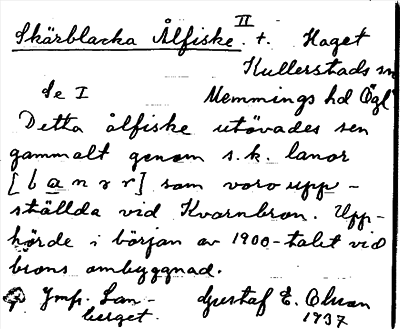 Skärblacka Ålfiske. II t. Haget
Kullerstads sn
Se I Memmings hd Ögl
Detta ålfiske utövades sen
gammalt genom s.k. lanor
[l a n ɜ r] som voro upp-
ställda vid Kvarnbron. Upp-
hörde i början av 1900-talet vid
brons ombyggnad.
Ymp. Lan- Gustaf E. Olsson
berget. 1937